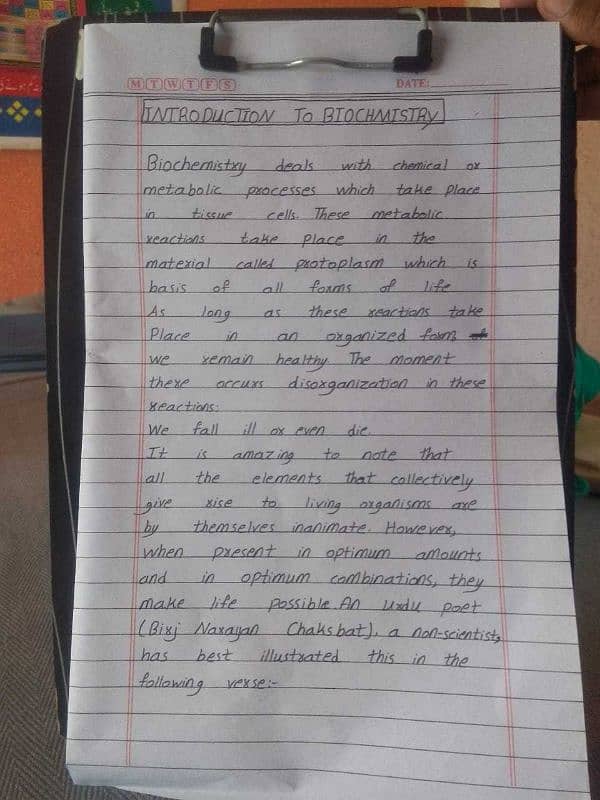 M T W T F S
DATE:
INTRODUCTION TO BIOCHMISTRY
Biochemistry deals with chemical or
metabolic processes which take place
in tissue cells. These metabolic
reactions take place in the
material called protoplasm which is
basis of all forms of life
As long as these reactions take
Place in an organized form
we remain healthy. The moment
there occurs disorganization in these
reactions:
We fall ill or even die.
It is amazing to note that
all the elements that collectively
give rise to living organisms are
by themselves inanimate. However,
when present in optimum amounts
and in optimum combinations, they
make life possible. An urdu poet
(Birj Narayan Chaksbat), a non-scientist,
has best illustrated this in the
following verse:-